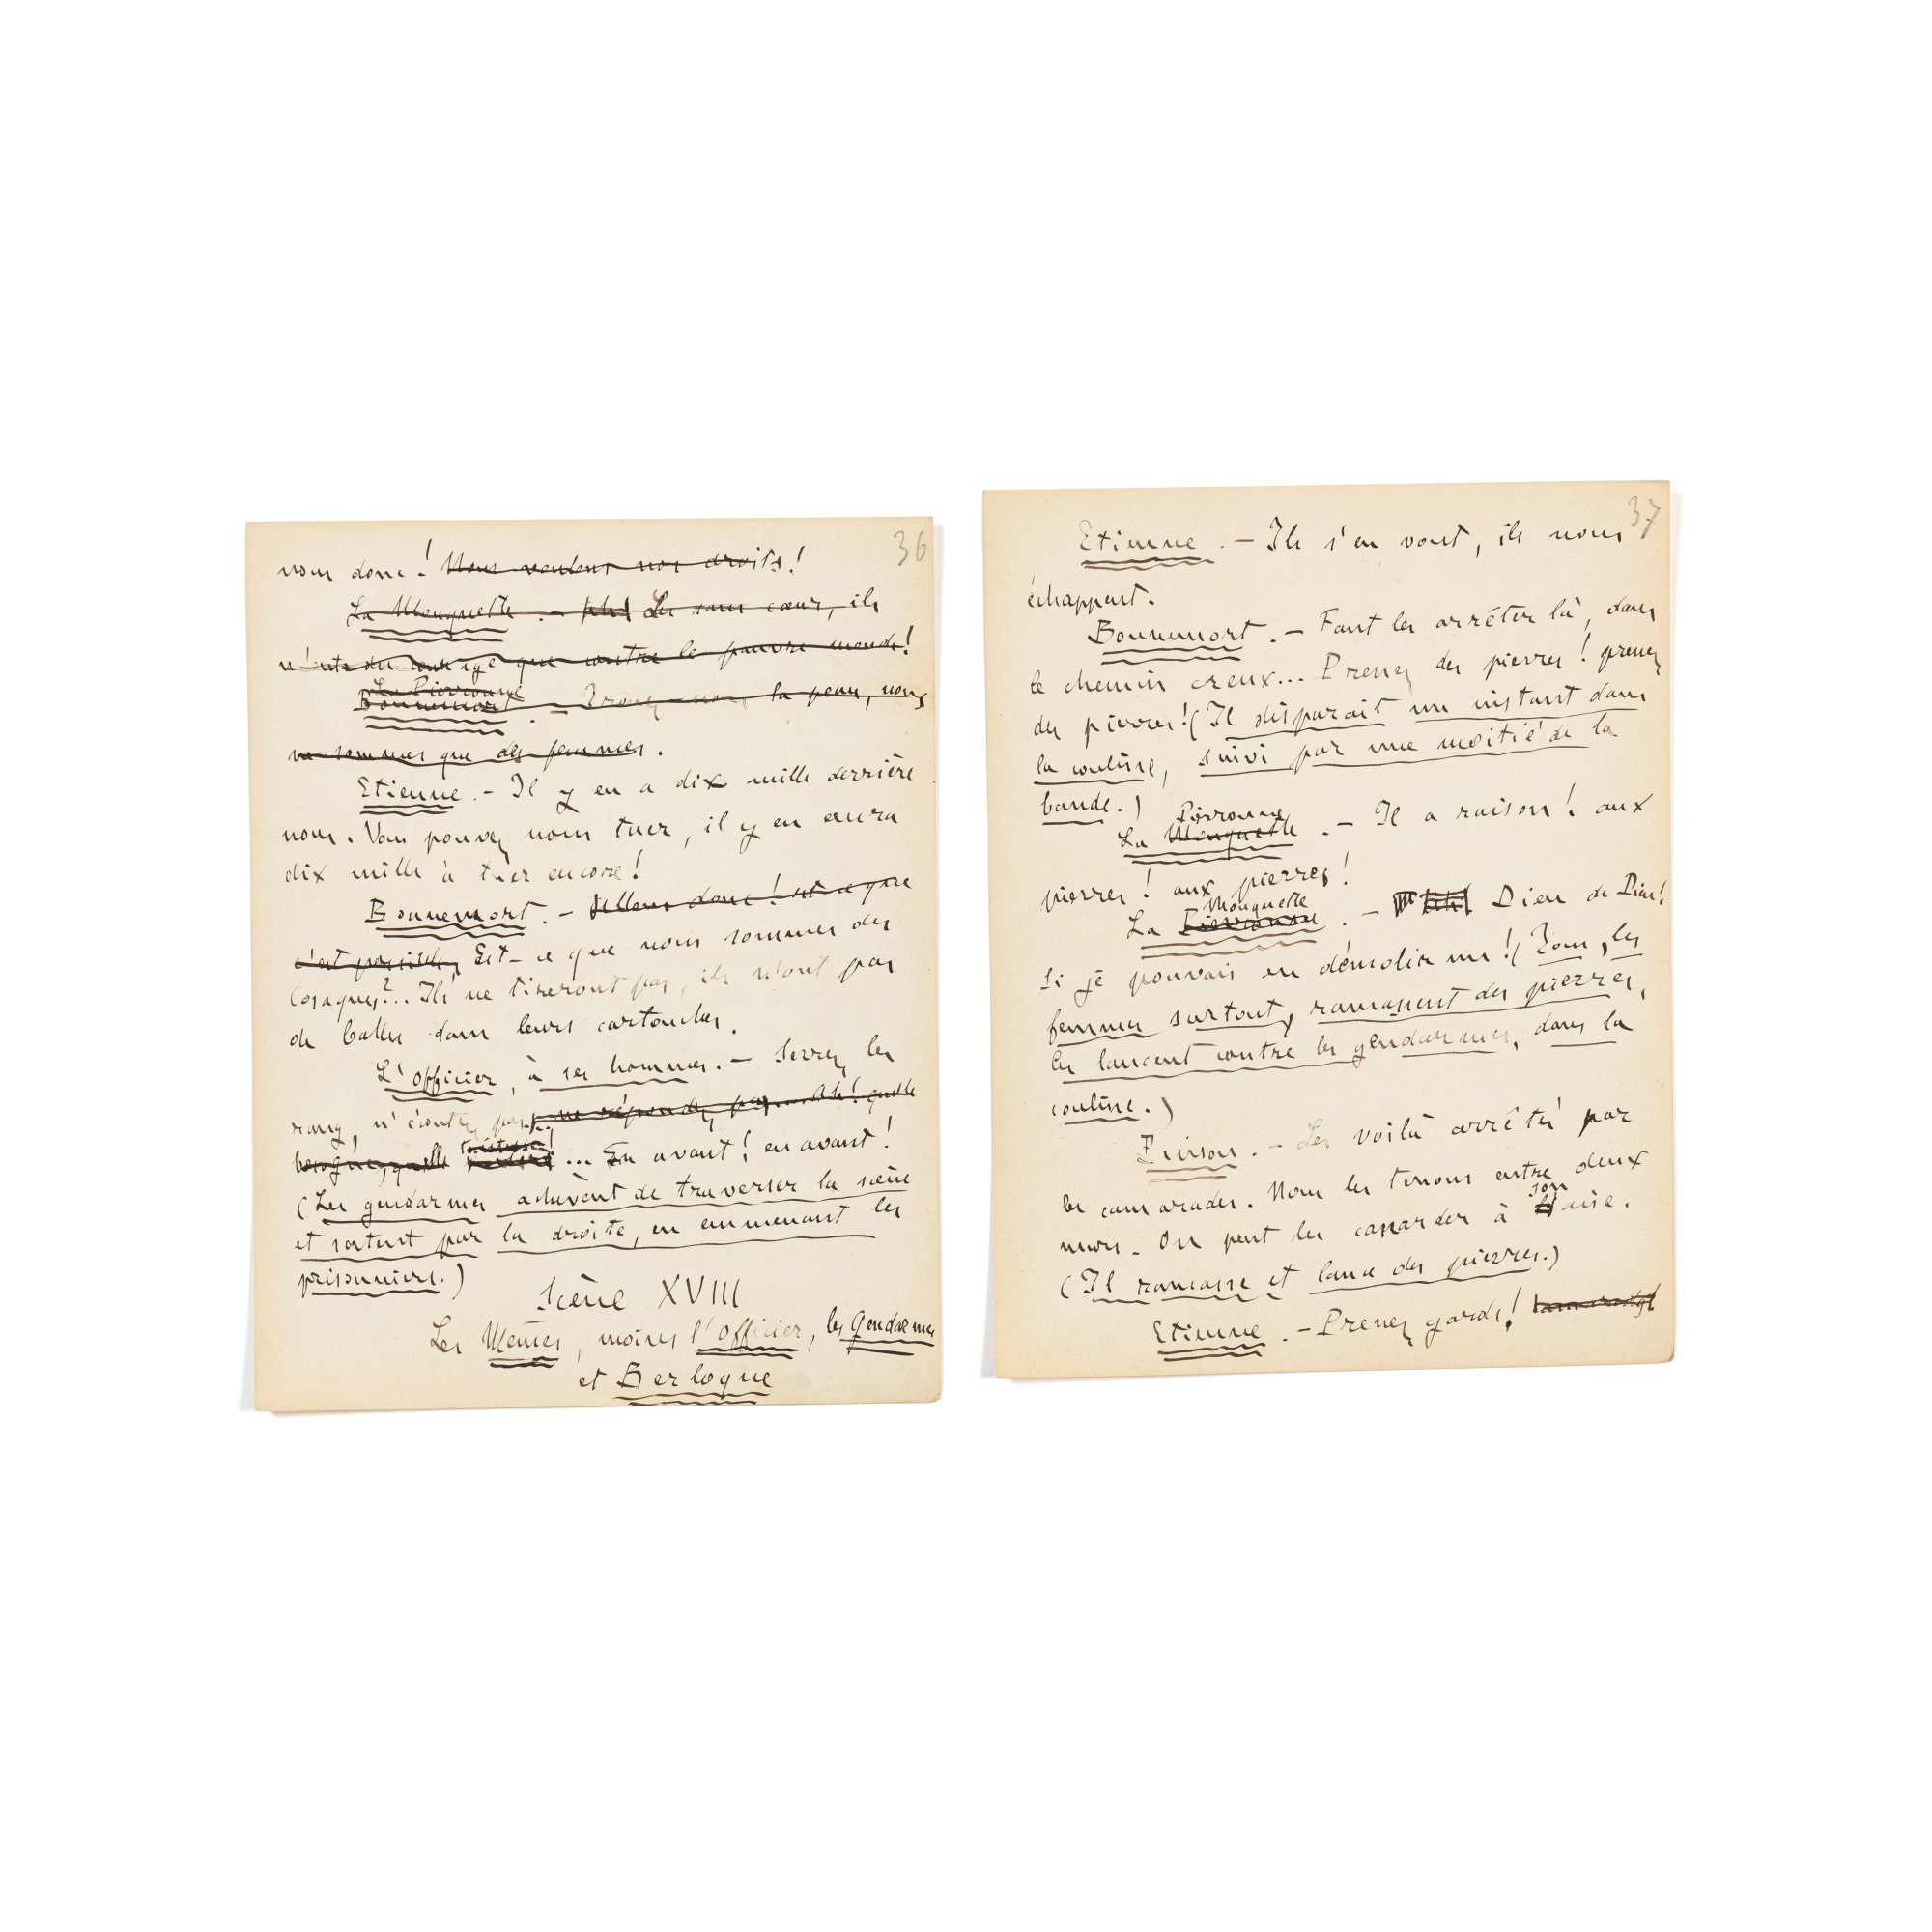 36
nous donc ! Nous voulons nos droits !
La Mouquette . — Les sans cœur, ils
n'ont du courage que contre le pauvre monde !
La Pierronne
Bonnemort . — Trouez-nous la peau, nous
ne sommes que des femmes .
Etienne . — Il y en a dix mille derrière
nous . Vous pouvez nous tuer, il y en aura
dix mille à tuer encore !
Bonnemort . — Allons donc ! est-ce que
c'est possible, Est-ce que nous sommes des
Cosaques ?... Ils ne tireront pas, ils n'ont pas
de balles dans leurs cartouches .
L'Officier, à ses hommes . — Serrez les
rangs, n'écoutez pas, ne répondez pas... Ah ! quelle
besogne, quelle tristesse ! ... En avant ! en avant !
(Les gendarmes achèvent de traverser la scène
et sortent par la droite, en emmenant les
prisonniers.)
Scène XVIII
Les Mêmes, moins l'Officier, les Gendarmes
et Berloque
37
Etienne . — Ils s'en vont, ils nous
échappent .
Bonnemort . — Faut les arrêter là, dans
le chemin creux... Prenez des pierres ! prenez
des pierres ! (Il disparait un instant dans
la coulisse, suivi par une moitié de la
bande.)
Pierronne
La Mouquette . — Il a raison ! aux
pierres ! aux pierres !
Mouquette
La Pierronne . — Dieu de Dieu !
Si je pouvais en démolir un ! (Tous, les
femmes surtout, ramassent des pierres,
les lancent contre les gendarmes, dans la
coulisse.)
Pierson . — Les voilà arrêtés par
les camarades . Nous les tenons entre deux
son
murs . On peut les canarder à aise .
(Il ramasse et lance des pierres.)
Etienne . — Prenez garde ! camarades